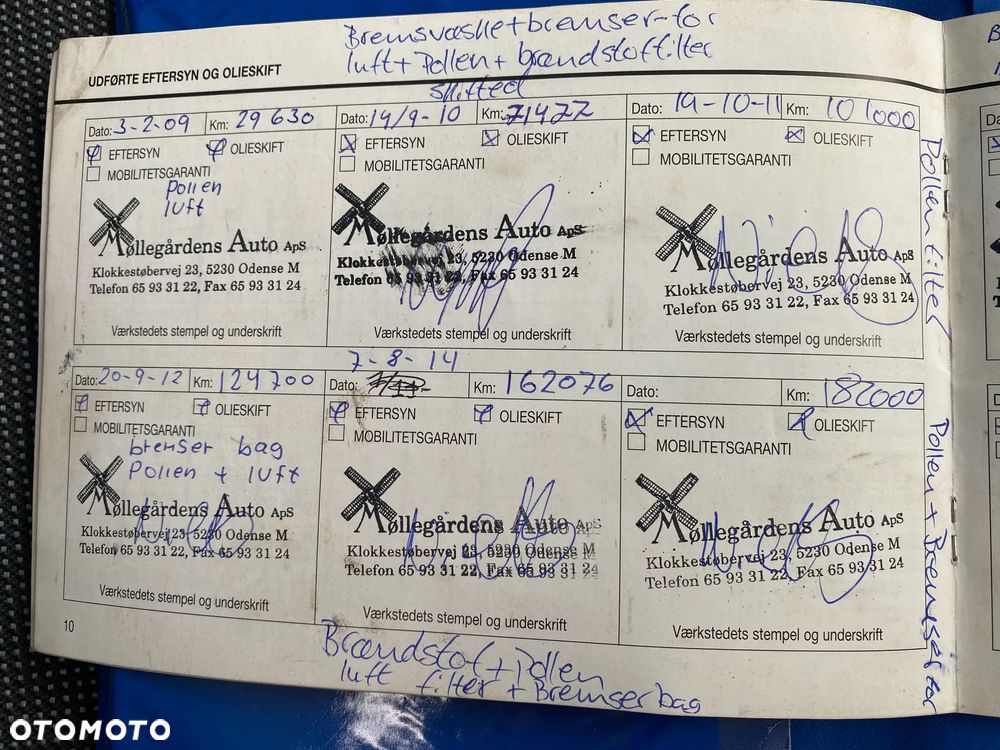 Bremsvæske + bremser-for
luft + Pollen + brændstoffilter
skifted
UDFØRTE EFTERSYN OG OLIESKIFT
Dato: 3-2-09 Km: 29 630
EFTERSYN OLIESKIFT
MOBILITETSGARANTI
Pollen
luft
Møllegårdens Auto ApS
Klokkestøbervej 23, 5230 Odense M
Telefon 65 93 31 22, Fax 65 93 31 24
Værkstedets stempel og underskrift
Dato: 14/9-10 Km: 71477
EFTERSYN OLIESKIFT
MOBILITETSGARANTI
Møllegårdens Auto ApS
Klokkestøbervej 23, 5230 Odense M
Telefon 65 93 31 22, Fax 65 93 31 24
Værkstedets stempel og underskrift
Dato: 19-10-11 Km: 101000
EFTERSYN OLIESKIFT
MOBILITETSGARANTI
Møllegårdens Auto ApS
Klokkestøbervej 23, 5230 Odense M
Telefon 65 93 31 22, Fax 65 93 31 24
Værkstedets stempel og underskrift
Pollenfilter
Dato: 20-9-12 Km: 124700
EFTERSYN OLIESKIFT
MOBILITETSGARANTI
bremser bag
Pollen + luft
Møllegårdens Auto ApS
Klokkestøbervej 23, 5230 Odense M
Telefon 65 93 31 22, Fax 65 93 31 24
Værkstedets stempel og underskrift
7-8-14
Dato: Km: 162076
EFTERSYN OLIESKIFT
MOBILITETSGARANTI
Møllegårdens Auto ApS
Klokkestøbervej 23, 5230 Odense M
Telefon 65 93 31 22, Fax 65 93 31 24
Værkstedets stempel og underskrift
Dato: Km: 182000
EFTERSYN OLIESKIFT
MOBILITETSGARANTI
Møllegårdens Auto ApS
Klokkestøbervej 23, 5230 Odense M
Telefon 65 93 31 22, Fax 65 93 31 24
Værkstedets stempel og underskrift
Pollen + Bremser for
10
Brændstof + Pollen
luft filter + Bremser bag
OTOMOTO